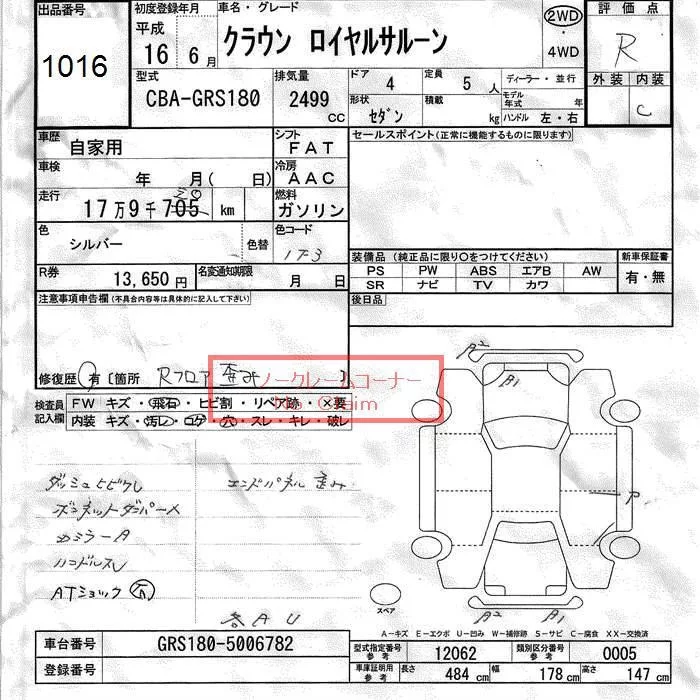 出品番号
1016
初度登録年月
平成
16年 6月
車名・グレード
クラウン ロイヤルサルーン
2WD
・
4WD
評価点
R
外装 内装
C
型式
CBA-GRS180
排気量
2499
CC
ドア 4
定員 5人
ディーラー・並行
形状 セダン
積載 kg
モデル年式 年
ハンドル 左・右
車歴
自家用
シフト
FAT
車検
年 月( 日)
冷房
AAC
走行
17万9千705 km
燃料
ガソリン
色
シルバー
色替
色コード
1F3
R券
13,650円
名変通知期限
月 日
セールスポイント(正常に機能するものに限ります)
装備品 (純正品に限り〇をつけてください)
新車保証書
PS PW ABS エアB AW
SR ナビ TV カワ
有・無
後日品
注意事項申告欄(不具合内容等は具体的に記入して下さい)
修復歴 有〔箇所 Rフロア 歪み 〕
ノークレームコーナー
No Claim
検査員
記入欄
FW キズ・飛石・ヒビ割・リペア跡・×要
内装 キズ・汚レ・コゲ・穴・スレ・キレ・破レ
ダッシュヒビワレ
エンドパネル 歪み
ボンネットダンパー×
ハンドルスレ
ATショック
各AU
A2
B1
A
A2 B1
スペア
A-キズ E-エクボ U-凹み W-補修跡 S-サビ C-腐食 XX-交換済
車台番号
GRS180-5006782
登録番号
型式指定番号
参考
12062
類別区分番号
参考
0005
車庫証明用
参考
長さ 484 cm
幅 178 cm
高さ 147 cm